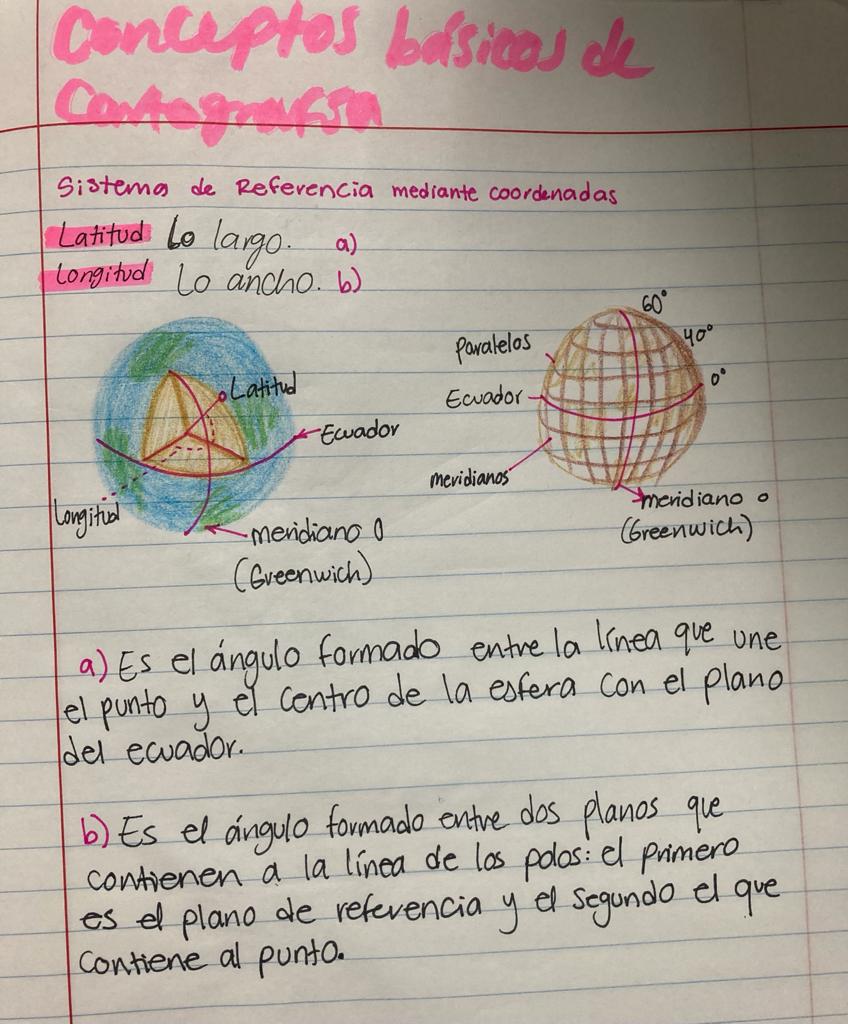 Conceptos básicos de
Cartografía
Sistema de Referencia mediante coordenadas
Latitud Lo largo. a)
Longitud Lo ancho. b)
Latitud
Ecuador
Longitud
meridiano 0
(Greenwich)
60°
40°
0°
Paralelos
Ecuador
meridianos
meridiano 0
(Greenwich)
a) Es el ángulo formado entre la línea que une
el punto y el centro de la esfera con el plano
del ecuador.
b) Es el ángulo formado entre dos planos que
contienen a la línea de los polos: el primero
es el plano de referencia y el segundo el que
contiene al punto.